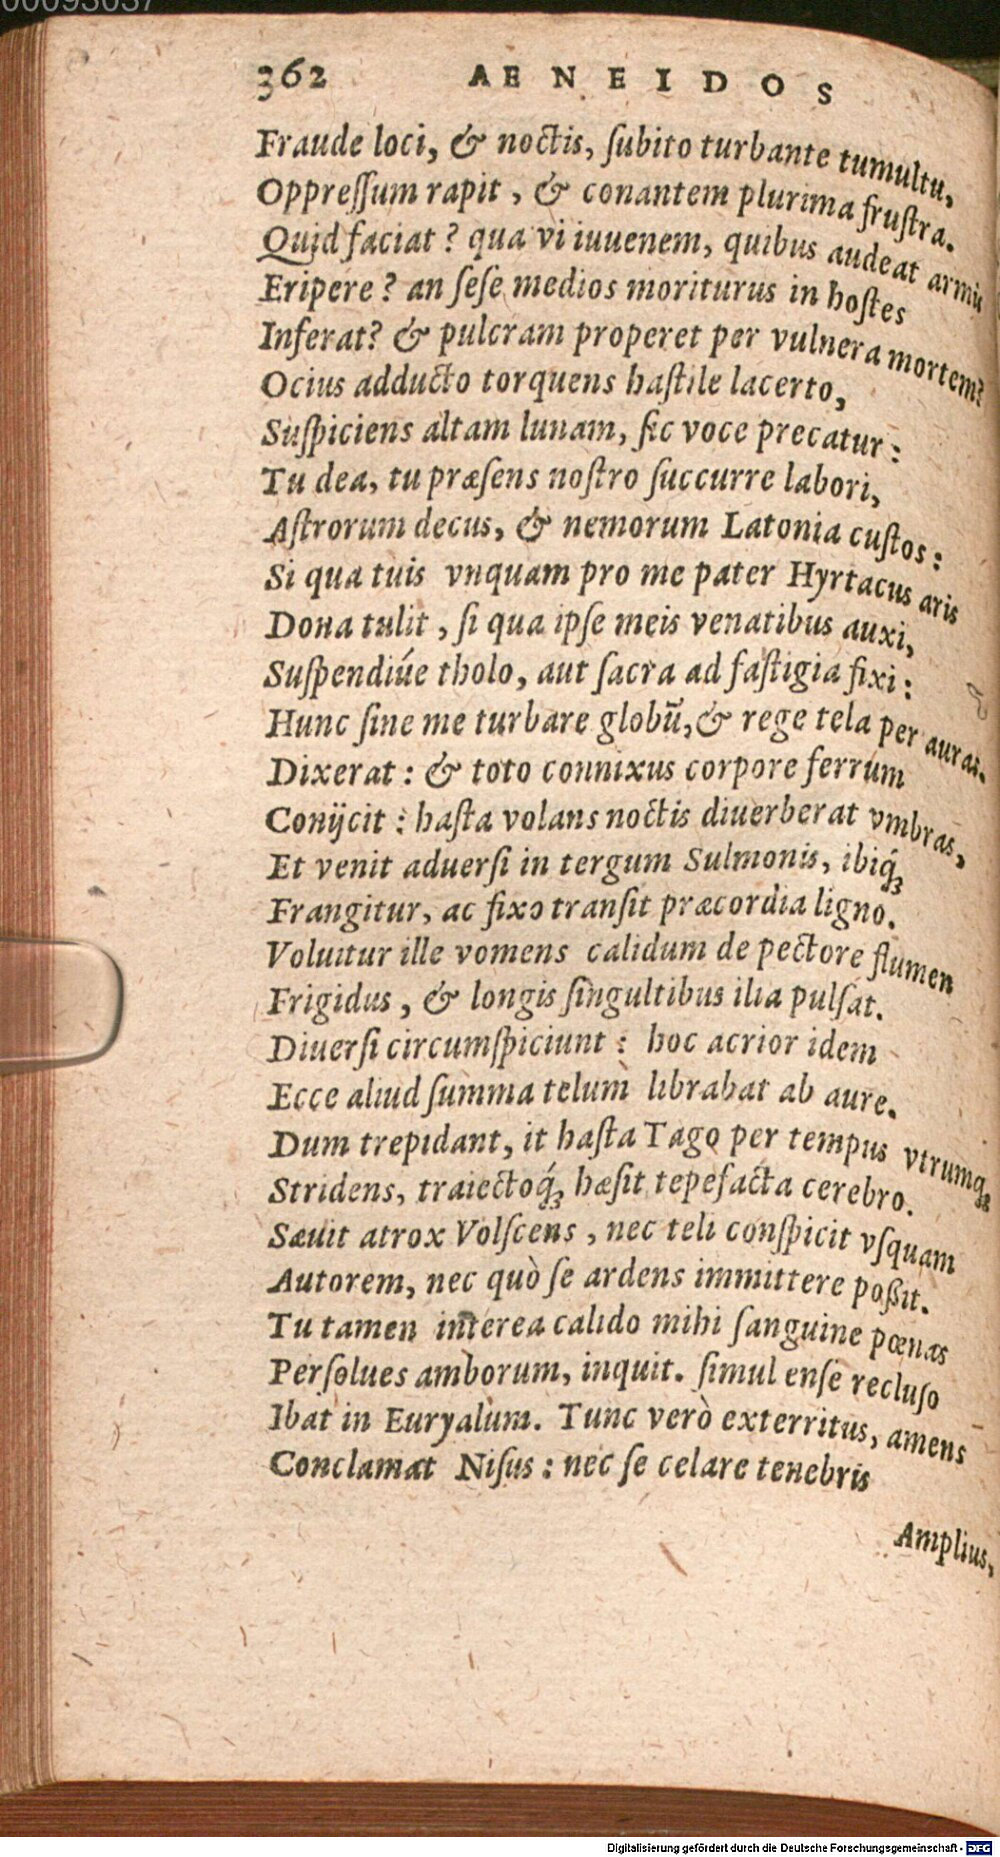 00093037
362 AENEIDOS
Fraude loci, & noctis, ſubito turbante tumultu,
Oppreſſum rapit, & conantem plurima fruſtra.
Quid faciat? qua vi iuuenem, quibus audeat armis
Eripere? an ſeſe medios moriturus in hoſtes
Inferat? & pulcram properet per vulnera mortem?
Ocius adducto torquens haſtile lacerto,
Suſpiciens altam lunam, ſic voce precatur:
Tu dea, tu præſens noſtro ſuccurre labori,
Aſtrorum decus, & nemorum Latonia cuſtos:
Si qua tuis vnquam pro me pater Hyrtacus aris
Dona tulit, ſi qua ipſe meis venatibus auxi,
Suſpendiúe tholo, aut ſacra ad faſtigia fixi:
Hunc ſine me turbare globū, & rege tela per auras.
Dixerat: & toto connixus corpore ferrum
Conijcit: haſta volans noctis diuerberat vmbras,
Et venit aduerſi in tergum Sulmonis, ibiq́ꝫ
Frangitur, ac fixo tranſit præcordia ligno.
Voluitur ille vomens calidum de pectore flumen
Frigidus, & longis ſingultibus ilia pulſat.
Diuerſi circumſpiciunt: hoc acrior idem
Ecce aliud ſumma telum librabat ab aure.
Dum trepidant, it haſta Tago per tempus vtrumqꝫ
Stridens, traiectoq́ꝫ hæſit tepefacta cerebro.
Sæuit atrox Volſcens, nec teli conſpicit vſquam
Autorem, nec quò ſe ardens immittere poßit.
Tu tamen interea calido mihi ſanguine pœnas
Perſolues amborum, inquit. ſimul enſe recluſo
Ibat in Euryalum. Tunc verò exterritus, amens
Conclamat Niſus: nec ſe celare tenebris
Amplius,
Digitalisierung gefördert durch die Deutsche Forschungsgemeinschaft - DFG